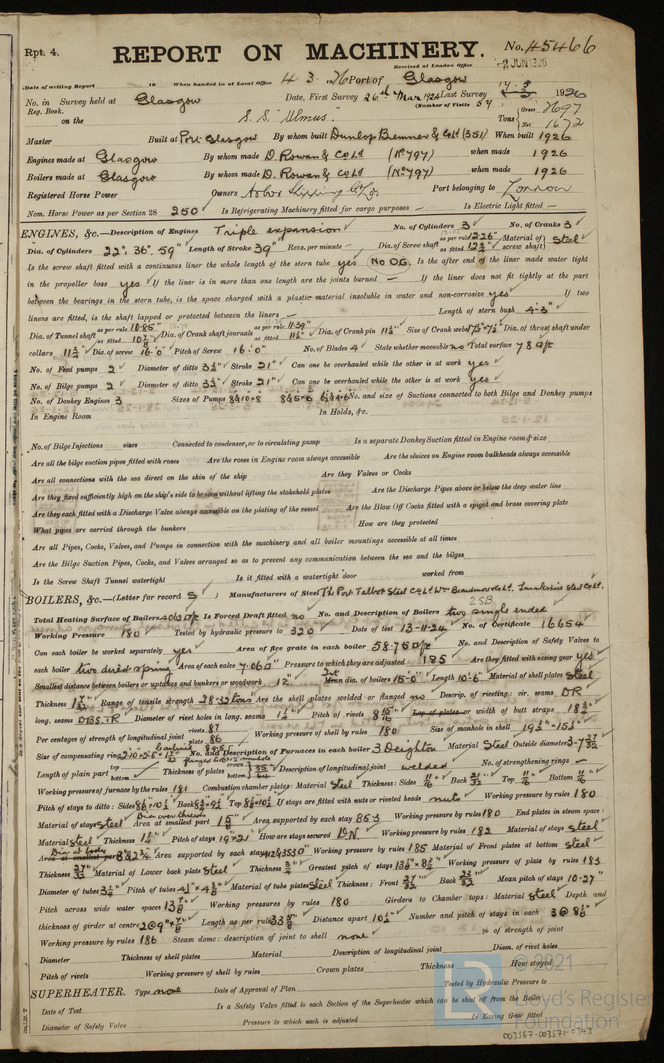 Rpt. 4.
REPORT ON MACHINERY.
No. 45466
Received at London Office
2 JUN 1926
Date of writing Report 19 When handed in at Local Office 4.3.1926 Port of Glasgow
No. in Survey held at Glasgow Date, First Survey 26th Mar 1924 Last Survey 1926
Reg. Book. (Number of Visits 54)
on the S.S. "Ulmus" Tons Gross 2697 Net 1672
Master Built at Port Glasgow By whom built Dunlop Bremner & Co Ld (351) When built 1926
Engines made at Glasgow By whom made D. Rowan & Co Ld (No 797) when made 1926
Boilers made at Glasgow By whom made D. Rowan & Co Ld (No 797) when made 1926
Registered Horse Power Owners Arbor Shipping Co Ld Port belonging to London
Nom. Horse Power as per Section 28 250 Is Refrigerating Machinery fitted for cargo purposes – Is Electric Light fitted –
ENGINES, &c.—Description of Engines Triple expansion No. of Cylinders 3 No. of Cranks 3
Dia. of Cylinders 22", 36", 59" Length of Stroke 39" Revs. per minute – Dia. of Screw shaft as per rule 12.26 as fitted Material of screw shaft Steel
Is the screw shaft fitted with a continuous liner the whole length of the stern tube yes No OG. Is the after end of the liner made water tight
in the propeller boss yes If the liner is in more than one length are the joints burned – If the liner does not fit tightly at the part
between the bearings in the stern tube, is the space charged with a plastic material insoluble in water and non-corrosive yes If two
liners are fitted, is the shaft lapped or protected between the liners – Length of stern bush 4'-3"
Dia. of Tunnel shaft as per rule 10.85" as fitted Dia. of Crank shaft journals as per rule 11.39" as fitted Dia. of Crank pin 11¾" Size of Crank webs Dia. of thrust shaft under
collars 11¾" Dia. of screw 16'-0" Pitch of Screw 16'-0" No. of Blades 4 State whether moveable no Total surface 78
No. of Feed pumps 2 Diameter of ditto 3½" Stroke 21" Can one be overhauled while the other is at work yes
No. of Bilge pumps 2 Diameter of ditto 3½" Stroke 21" Can one be overhauled while the other is at work yes
No. of Donkey Engines 3 Sizes of Pumps No. and size of Suctions connected to both Bilge and Donkey pumps
In Engine Room In Holds, &c.
No. of Bilge Injections sizes Connected to condenser, or to circulating pump Is a separate Donkey Suction fitted in Engine room & size
Are all the bilge suction pipes fitted with roses Are the roses in Engine room always accessible Are the sluices on Engine room bulkheads always accessible
Are all connections with the sea direct on the skin of the ship Are they Valves or Cocks
Are they fixed sufficiently high on the ship's side to be seen without lifting the stokehold plates Are the Discharge Pipes above or below the deep water line
Are they each fitted with a Discharge Valve always accessible on the plating of the vessel Are the Blow Off Cocks fitted with a spigot and brass covering plate
What pipes are carried through the bunkers How are they protected
Are all Pipes, Cocks, Valves, and Pumps in connection with the machinery and all boiler mountings accessible at all times
Are the Bilge Suction Pipes, Cocks, and Valves arranged so as to prevent any communication between the sea and the bilges
Is the Screw Shaft Tunnel watertight Is it fitted with a watertight door worked from
BOILERS, &c.—(Letter for record S) Manufacturers of Steel The Port Talbot Steel Co Ld Wm Beardmore & Co Ld. Lanarkshire Steel Co Ld.
2 SB
Total Heating Surface of Boilers Is Forced Draft fitted no No. and Description of Boilers two single ended
Working Pressure 180 Tested by hydraulic pressure to 320 Date of test 13-11-24 No. of Certificate 16654
Can each boiler be worked separately yes Area of fire grate in each boiler 58.75 No. and Description of Safety Valves to
each boiler two direct spring Area of each valve 7.060" Pressure to which they are adjusted 185 Are they fitted with easing gear yes
Smallest distance between boilers or uptakes and bunkers or woodwork 12" dia. of boilers 15'-0" Length 10'-6" Material of shell plates Steel
Thickness Range of tensile strength 28-32 tons Are the shell plates welded or flanged no Descrip. of riveting: cir. seams DR
long. seams DBS. TR Diameter of rivet holes in long. seams Pitch of rivets Lap of plates or width of butt straps
Per centages of strength of longitudinal joint rivets 87 plate 86 Working pressure of shell by rules 180 Size of manhole in shell
Size of compensating ring No. and Description of Furnaces in each boiler 3 Deighton Material Steel Outside diameter
Length of plain part top bottom Thickness of plates crown bottom Description of longitudinal joint welded No. of strengthening rings –
Working pressure of furnace by the rules 181 Combustion chamber plates: Material Steel Thickness: Sides Back Top Bottom
Pitch of stays to ditto: Sides Back Top If stays are fitted with nuts or riveted heads nuts Working pressure by rules 180
Material of stays Steel Area at smallest part Area supported by each stay 853 Working pressure by rules 180 End plates in steam space:
Material Steel Thickness Pitch of stays 19×21 How are stays secured DN Working pressure by rules 182 Material of stays Steel
Area at smallest part Area supported by each stay Working pressure by rules 185 Material of Front plates at bottom Steel
Thickness Material of Lower back plate Steel Thickness Greatest pitch of stays Working pressure of plate by rules 183
Diameter of tubes 3¼" Pitch of tubes Material of tube plates Steel Thickness: Front Back Mean pitch of stays 10.27"
Pitch across wide water spaces Working pressures by rules 180 Girders to Chamber tops: Material Steel Depth and
thickness of girder at centre Length as per rule Distance apart Number and pitch of stays in each
Working pressure by rules 186 Steam dome: description of joint to shell none % of strength of joint
Diameter Thickness of shell plates Material Description of longitudinal joint Diam. of rivet holes
Pitch of rivets Working pressure of shell by rules Crown plates Thickness How stayed
SUPERHEATER. Type none Date of Approval of Plan Tested by Hydraulic Pressure to
Date of Test Is a Safety Valve fitted to each Section of the Superheater which can be shut off from the Boiler
Diameter of Safety Valve Pressure to which each is adjusted Is Easing Gear fitted
© 2021
Lloyd's Register
Foundation
003567-003571-0343